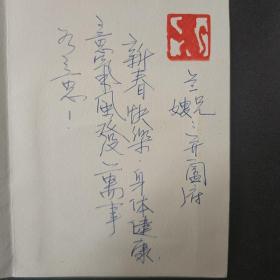 兰兄
嫂:并阖府
新春快乐.身体健康.
意气风发.万事
如意!